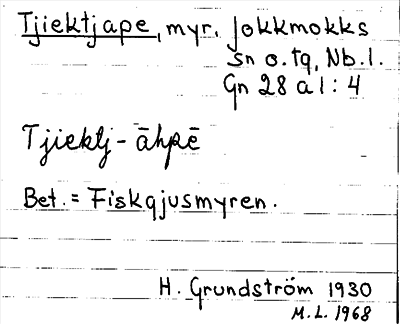 Tjiektjape, myr. Jokkmokks
sn o. tg, Nb. l.
Gn 28 a l : 4
Tjiektj - āhpē
Bet. = Fiskgjusmyren.
H. Grundström 1930
M. L. 1968